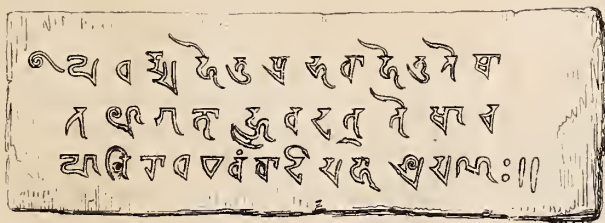 ये धर्म्मा हेतुप्रभवा हेतु तेषा
तथागत ह्यवदत् तेषा च
यो निरोध एवं वादि महाश्रमणः॥